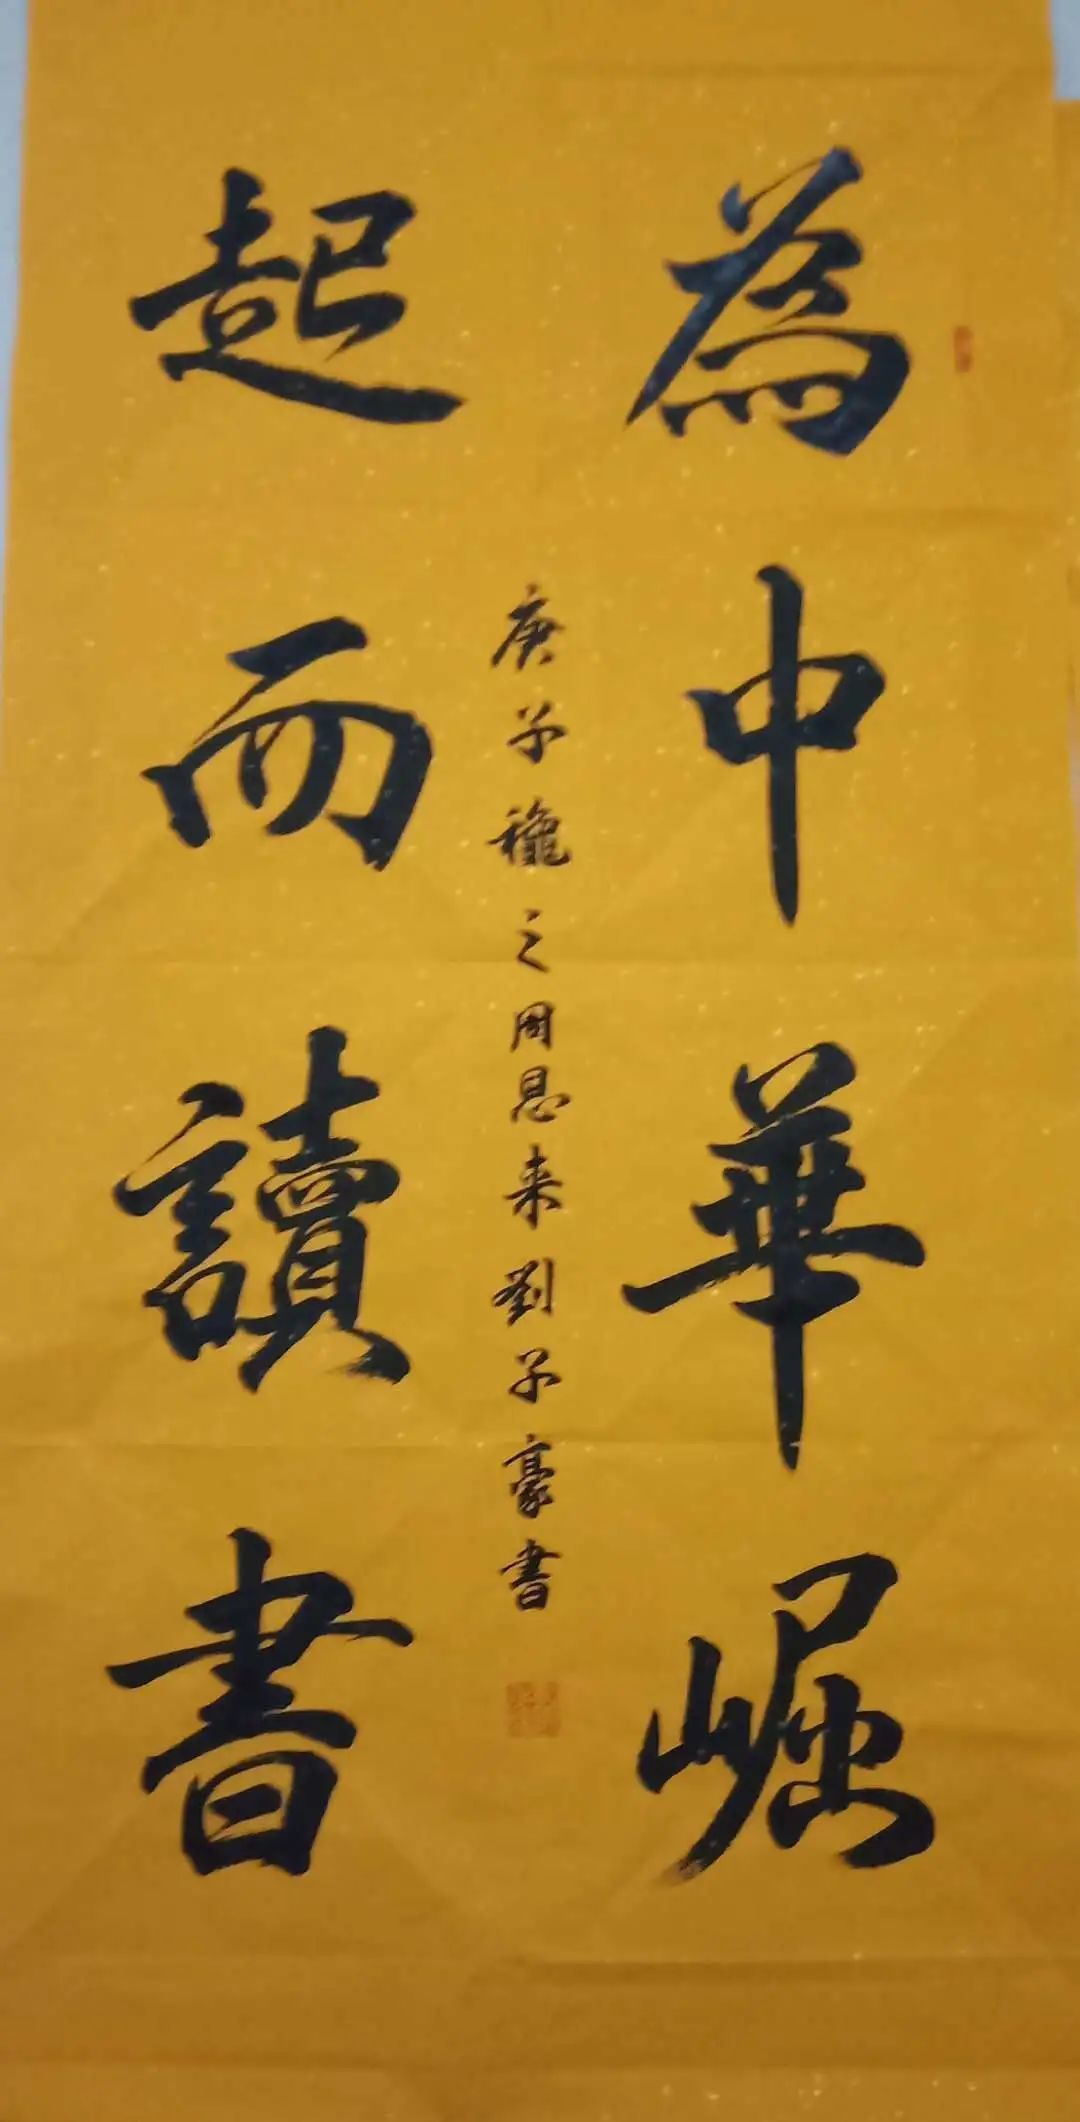 為中華崛
起而讀書
庚子龝之周恩来劉子豪書